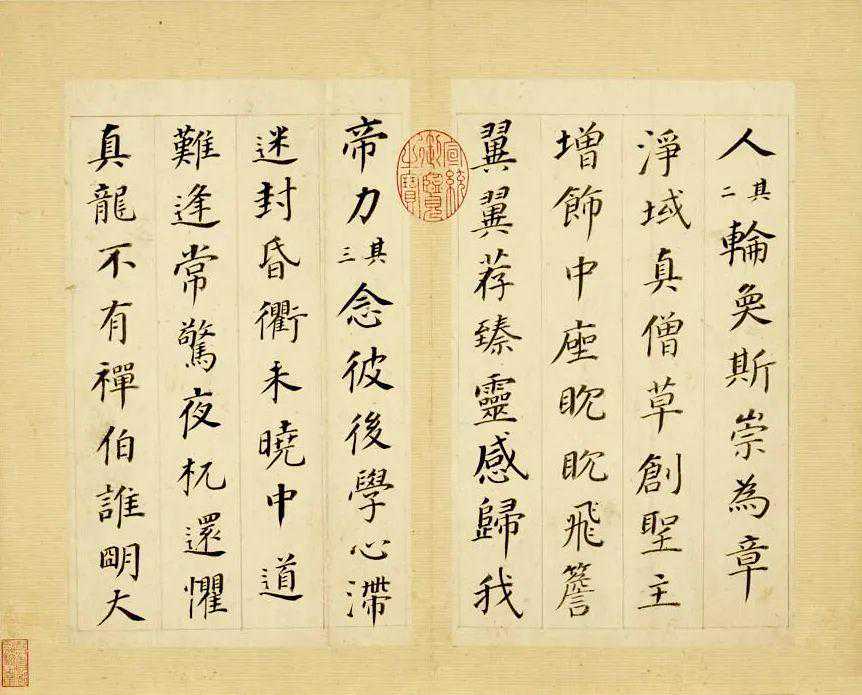 人其二輪奐斯崇為章
淨域真僧草創聖主
增飾中座眈眈飛簷
翼翼荐臻靈感歸我
宣統御覽之寶
帝力其三念彼後學心滯
迷封昏衢未曉中道
難逢常驚夜杌還懼
真龍不有禪伯誰眀大